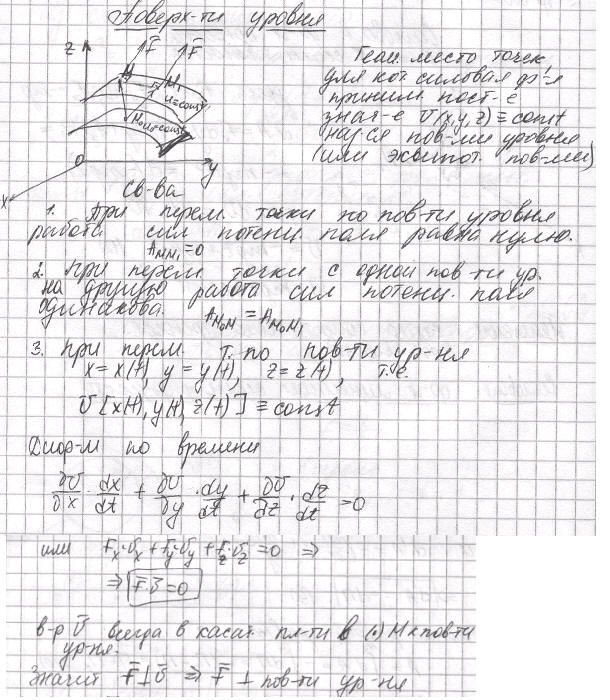 Поверх-ти уровня
z
F̄
F̄
M
M₁
U=const
M₀
U=const
O
y
x
Геом. место точек,
для кот. силовая ф-я
приним. пост-е
знач-е U(x,y,z) ≡ const
наз-ся пов-ми уровня
(или эквипот. пов-ми)
Св-ва
1. При перем. точки по пов-ти уровня
работа сил потенц. поля равна нулю.
A_MM₁ = 0
2. При перем. точки с одной пов-ти ур.
на другую работа сил потенц. поля
одинакова. A_M₀M = A_M₀M₁
3. При перем. т. по пов-ти ур-ня
x = x(t), y = y(t), z = z(t), т.е.
U[x(t), y(t), z(t)] ≡ const
Диф-м по времени
∂U/∂x · dx/dt + ∂U/∂y · dy/dt + ∂U/∂z · dz/dt = 0
или Fx·υx + Fy·υy + Fz·υz = 0 ⇒
⇒ F̄·ῡ = 0
в-р ῡ всегда в касат. пл-ти в (·) M к пов-ти
ур-ня.
Значит F̄ ⊥ ῡ ⇒ F̄ ⊥ пов-ти ур-ня